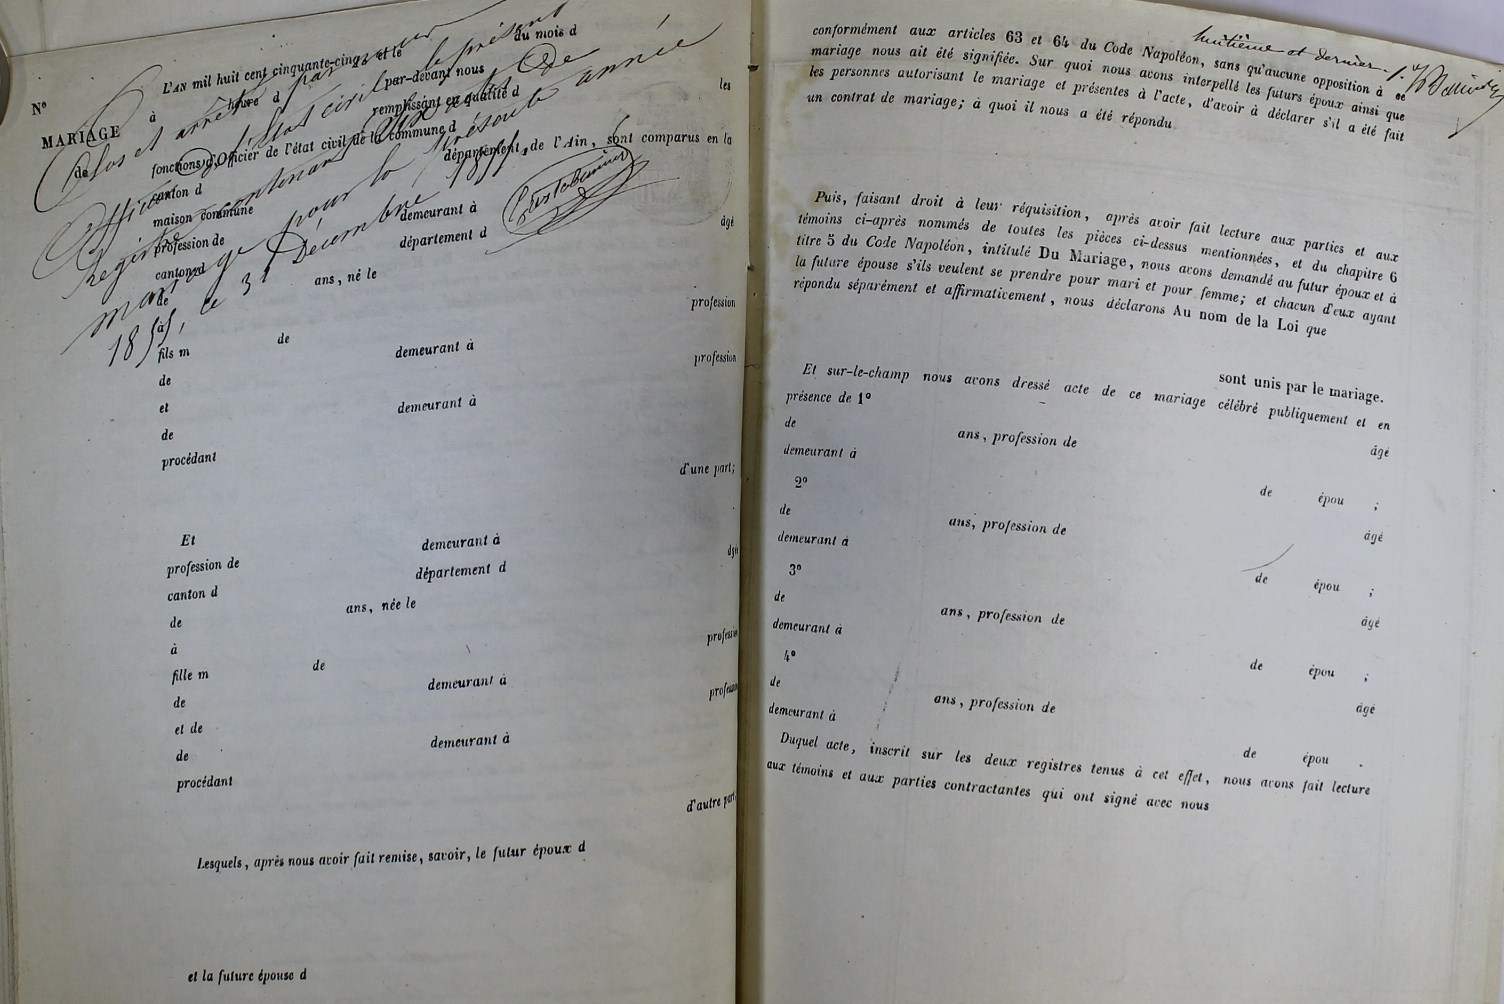 N°
MARIAGE
L'AN mil huit cent cinquante-cinq, et le
du mois d
à
heure d
par-devant nous
les
de
remplissant en qualité d
fonctions d'Officier de l'état civil de la commune d
canton d
département de l'Ain, sont comparus en la
maison commune
profession de
demeurant à
âgé
canton d
département d
de
ans, né le
à
profession
fils m
de
de
demeurant à
profession
et
de
demeurant à
procédant
d'une part;
Et
profession de
demeurant à
âgée
canton d
département d
de
ans, née le
à
profession
fille m
de
de
demeurant à
profession
et de
de
demeurant à
procédant
d'autre part.
Lesquels, après nous avoir fait remise, savoir, le futur époux d
et la future épouse d
Clos et arrêté par nous
Officier de l'état civil le présent
registre contenant les actes de
mariage pour la présente année
1855, ce 31 Décembre 1855.
huitième et dernier
conformément aux articles 63 et 64 du Code Napoléon, sans qu'aucune opposition à ce
mariage nous ait été signifiée. Sur quoi nous avons interpellé les futurs époux ainsi que
les personnes autorisant le mariage et présentes à l'acte, d'avoir à déclarer s'il a été fait
un contrat de mariage; à quoi il nous a été répondu
Puis, faisant droit à leur réquisition, après avoir fait lecture aux parties et aux
témoins ci-après nommés de toutes les pièces ci-dessus mentionnées, et du chapitre 6
titre 5 du Code Napoléon, intitulé Du Mariage, nous avons demandé au futur époux et à
la future épouse s'ils veulent se prendre pour mari et pour femme; et chacun d'eux ayant
répondu séparément et affirmativement, nous déclarons Au nom de la Loi que
sont unis par le mariage.
Et sur-le-champ nous avons dressé acte de ce mariage célébré publiquement et en
présence de 1°
de
ans, profession de
âgé
demeurant à
2°
de épou ;
de
ans, profession de
âgé
demeurant à
3°
de épou ;
de
ans, profession de
âgé
demeurant à
4°
de épou ;
de
ans, profession de
âgé
demeurant à
de épou .
Duquel acte, inscrit sur les deux registres tenus à cet effet, nous avons fait lecture
aux témoins et aux parties contractantes qui ont signé avec nous